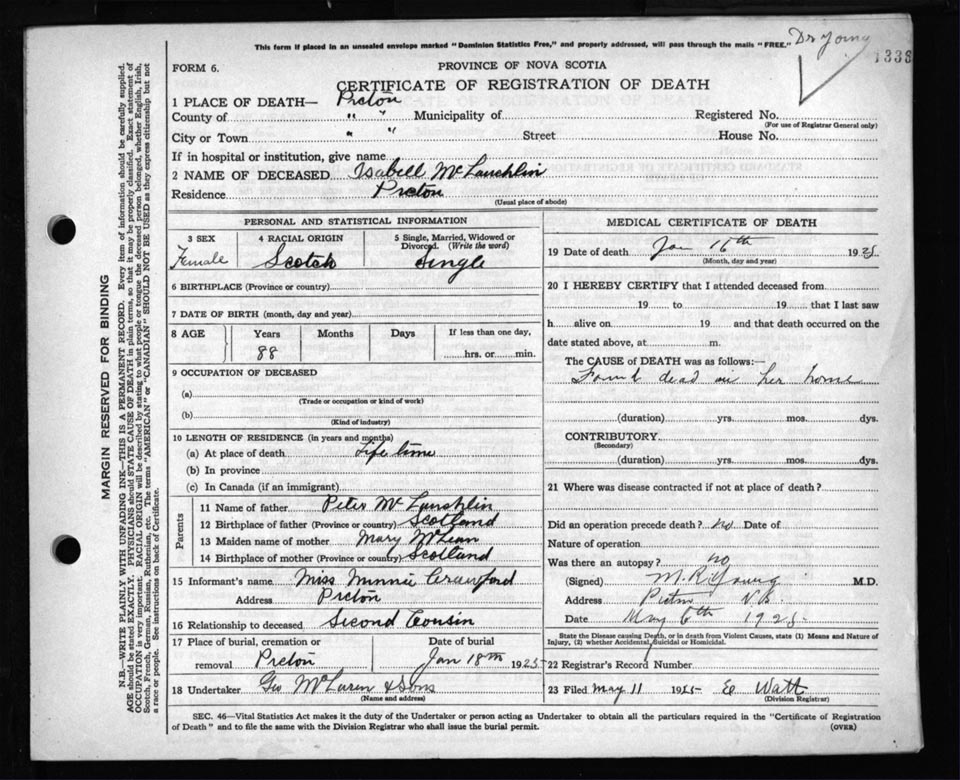 Dr Young
1338
This form if placed in an unsealed envelope marked "Dominion Statistics Free," and properly addressed, will pass through the mails "FREE."
FORM 6.
PROVINCE OF NOVA SCOTIA
CERTIFICATE OF REGISTRATION OF DEATH
1 PLACE OF DEATH— Pictou
County of " " Municipality of Registered No.
(For use of Registrar General only)
City or Town " " Street House No.
If in hospital or institution, give name
2 NAME OF DECEASED Isabell McLauchlin
Residence Pictou
(Usual place of abode)
PERSONAL AND STATISTICAL INFORMATION
3 SEX
Female
4 RACIAL ORIGIN
Scotch
5 Single, Married, Widowed or Divorced. (Write the word)
Single
6 BIRTHPLACE (Province or country)
7 DATE OF BIRTH (month, day and year)
8 AGE Years Months Days If less than one day,
88 hrs. or min.
9 OCCUPATION OF DECEASED
(a)
(Trade or occupation or kind of work)
(b)
(Kind of industry)
10 LENGTH OF RESIDENCE (in years and months)
(a) At place of death Life time
(b) In province
(c) In Canada (if an immigrant)
Parents
11 Name of father Peter McLauchlin
12 Birthplace of father (Province or country) Scotland
13 Maiden name of mother Mary McLean
14 Birthplace of mother (Province or country) Scotland
15 Informant's name Miss Minnie Crawford
Address Pictou
16 Relationship to deceased Second Cousin
17 Place of burial, cremation or Date of burial
removal Pictou Jan 18th 1925
18 Undertaker Geo McLaren & Sons
(Name and address)
MEDICAL CERTIFICATE OF DEATH
19 Date of death Jan 16th 1925
(Month, day and year)
20 I HEREBY CERTIFY that I attended deceased from
19 to 19 that I last saw
h alive on 19 and that death occurred on the
date stated above, at m.
The CAUSE of DEATH was as follows:—
Found dead in her home
(duration) yrs. mos. dys.
CONTRIBUTORY
(Secondary)
(duration) yrs. mos. dys.
21 Where was disease contracted if not at place of death?
Did an operation precede death? no Date of
Nature of operation
Was there an autopsy? no
(Signed) M. R. Young M.D.
Address Pictou N.S.
Date May 6th 1925
State the Disease causing Death, or in death from Violent Causes, state (1) Means and Nature of
Injury, (2) whether Accidental, Suicidal or Homicidal.
22 Registrar's Record Number
23 Filed May 11 1925 Watt
(Division Registrar)
SEC. 46—Vital Statistics Act makes it the duty of the Undertaker or person acting as Undertaker to obtain all the particulars required in the "Certificate of Registration
of Death" and to file the same with the Division Registrar who shall issue the burial permit. (OVER)
MARGIN RESERVED FOR BINDING
N.B.—WRITE PLAINLY WITH UNFADING INK—THIS IS A PERMANENT RECORD. Every item of information should be carefully supplied.
AGE should be stated EXACTLY. PHYSICIANS should STATE CAUSE OF DEATH in plain terms, so that it may be properly classified. Exact statement of
OCCUPATION is very important. RACIAL ORIGIN will be described by stating to what people or tongue the deceased person belonged, whether English, Irish,
Scotch, French, German, Russian, Ruthenian, etc. The terms "AMERICAN" or "CANADIAN" SHOULD NOT BE USED as they express citizenship but not
a race or people. See instructions on back of Certificate.